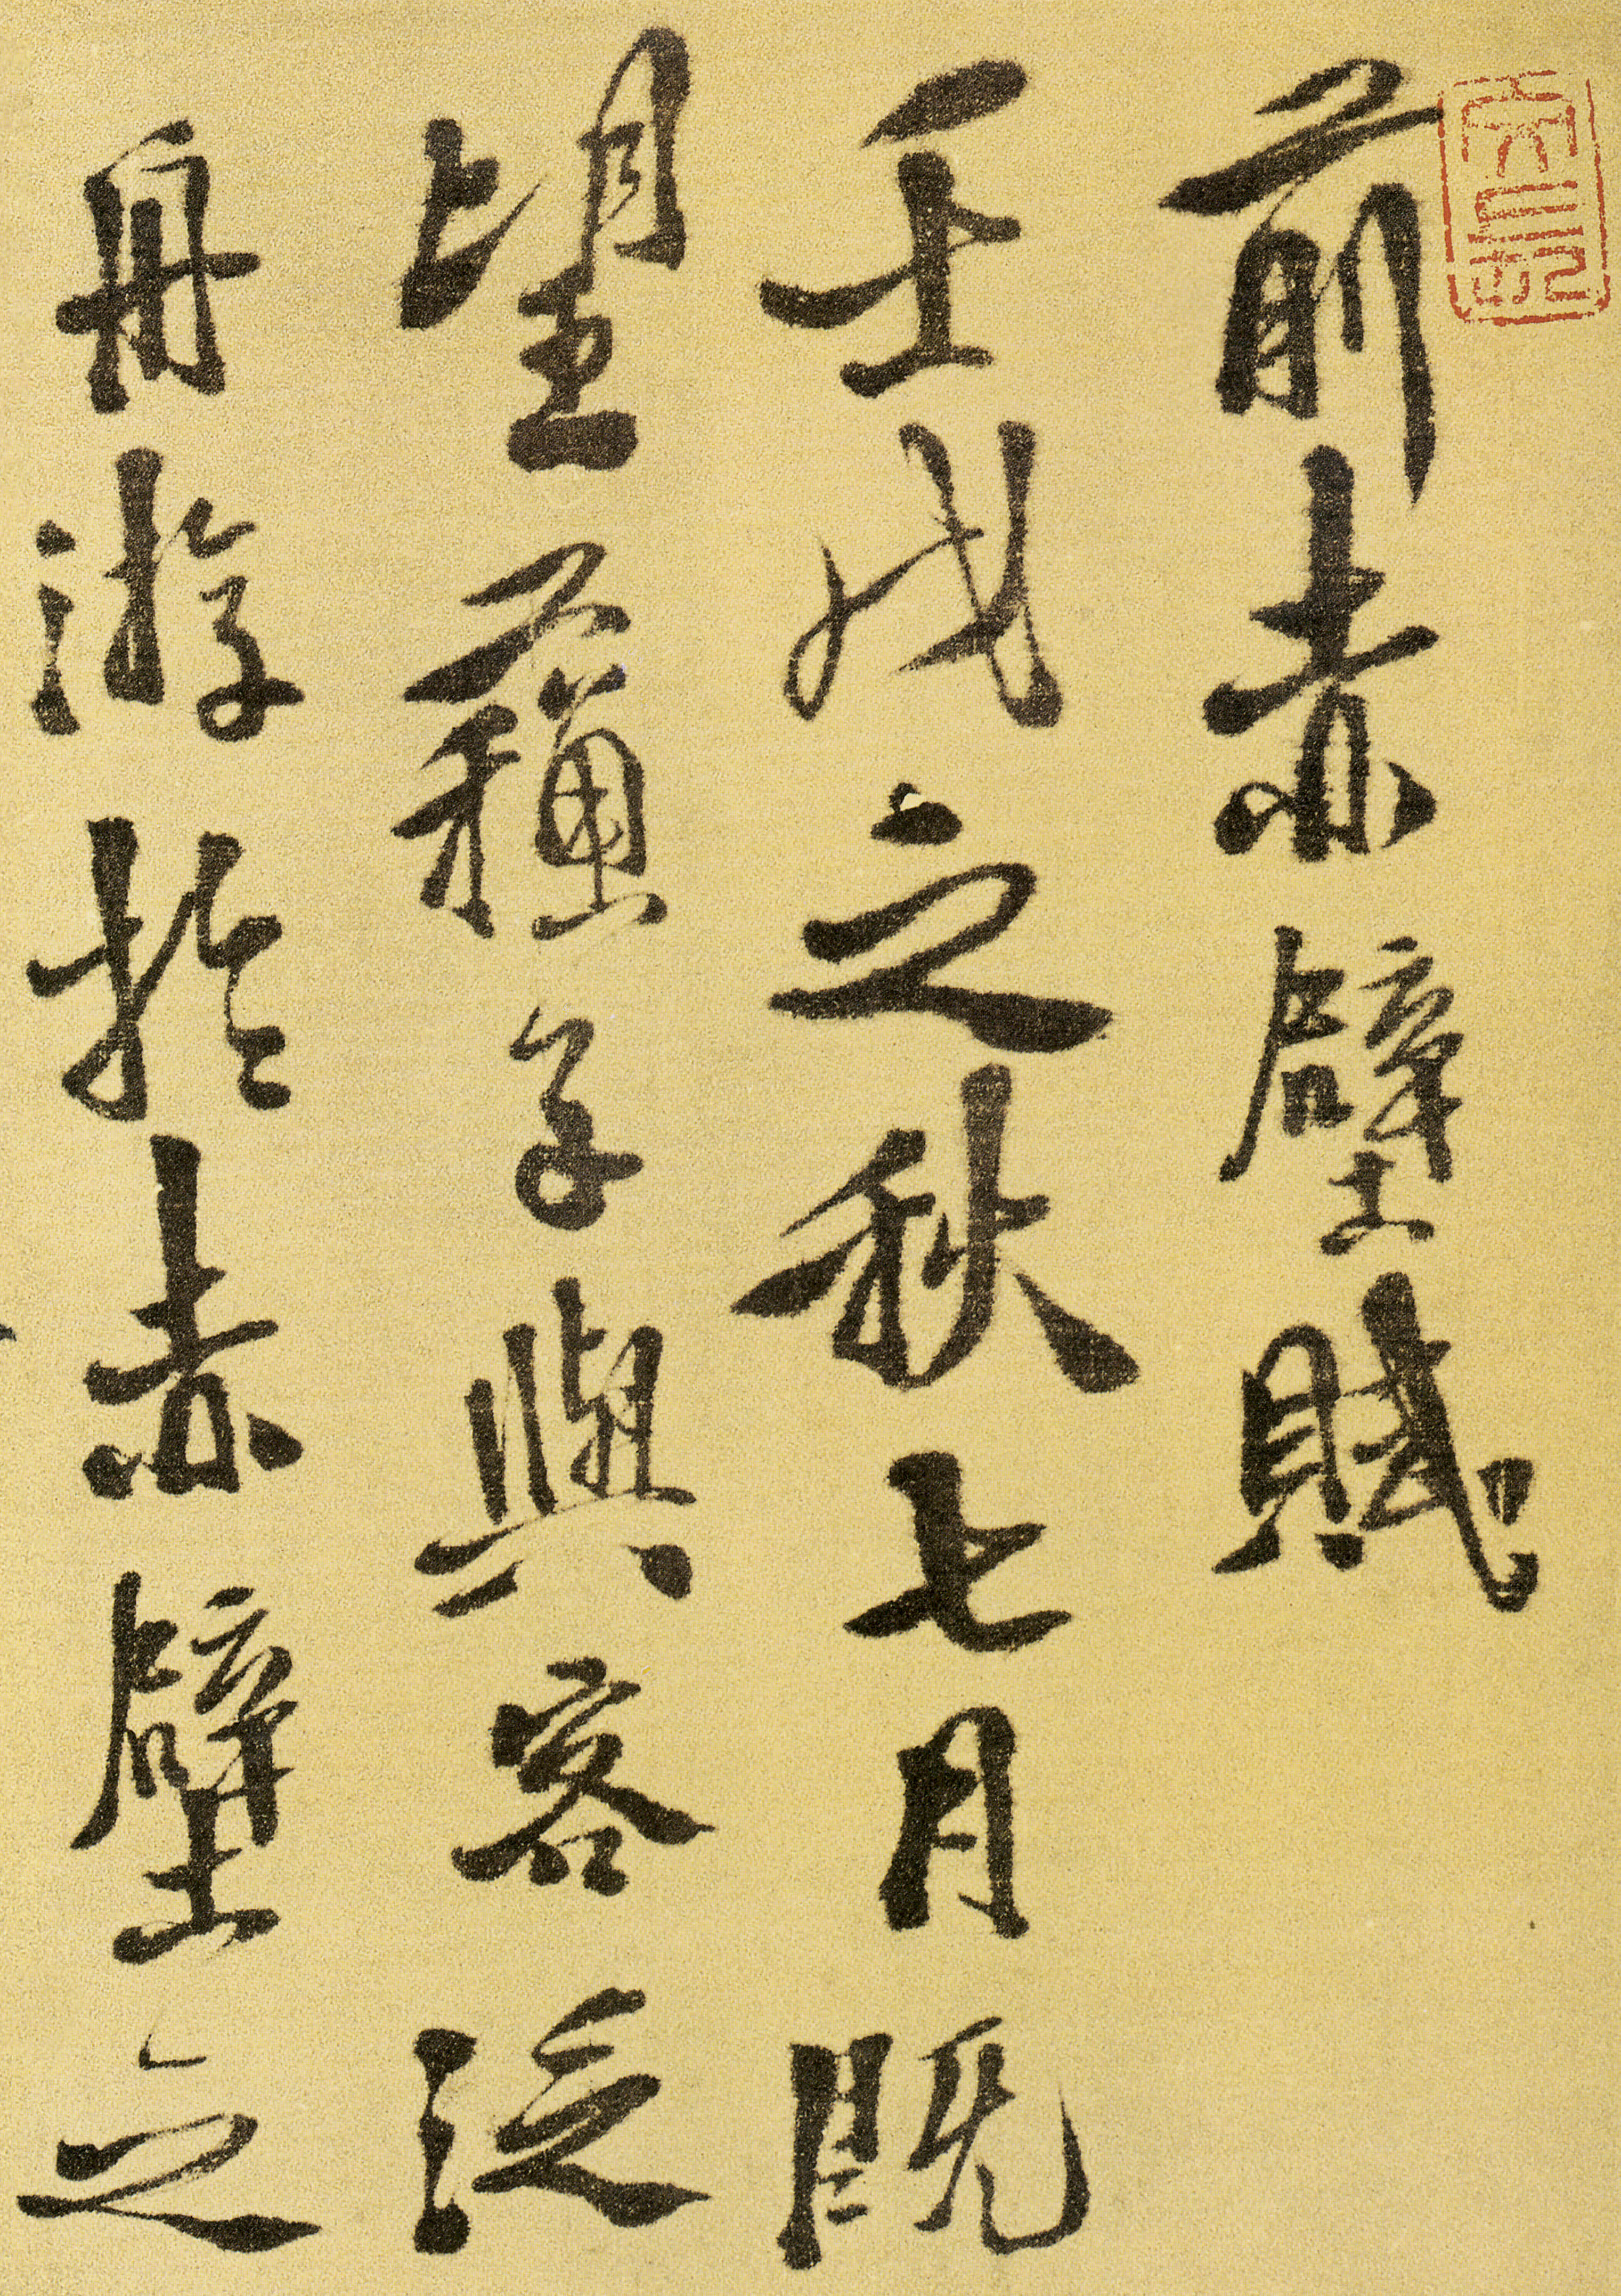 前赤壁賦
壬戌之秋七月既
望蘓子與客泛
舟游於赤壁之